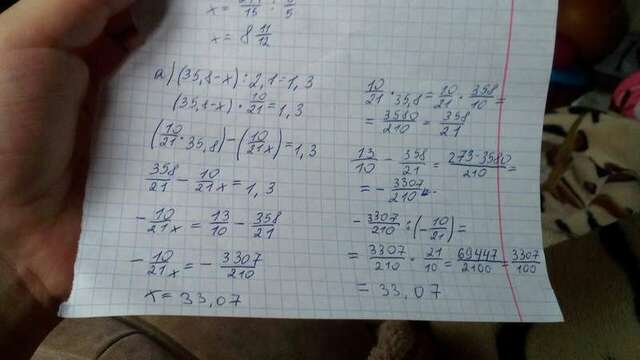 x = 15 : 5
x = 8 11/12
a) (35,8-x) : 2,1 = 1,3
(35,8-x) · 10/21 = 1,3
(10/21 · 35,8) - (10/21 x) = 1,3
358/21 - 10/21 x = 1,3
- 10/21 x = 13/10 - 358/21
- 10/21 x = - 3307/210
x = 33,07
10/21 · 35,8 = 10/21 · 358/10 =
= 3580/210 = 358/21
13/10 - 358/21 = 273-3580/210 =
= - 3307/210
- 3307/210 : (- 10/21) =
= 3307/210 · 21/10 = 69447/2100 = 3307/100
= 33,07